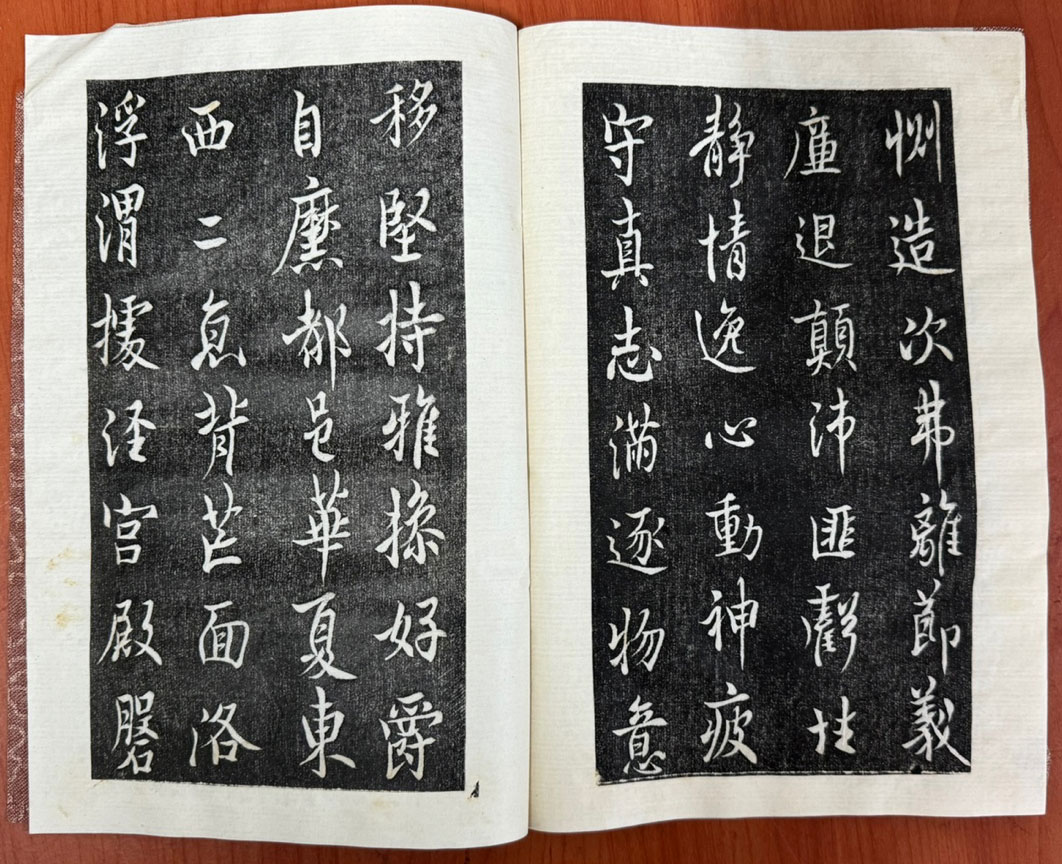 惻造次弗離節義
廉退顛沛匪虧性
靜情逸心動神疲
守真志滿逐物意
移堅持雅操好爵
自縻都邑華夏東
西二京背芒面洛
浮渭據涇宮殿磐